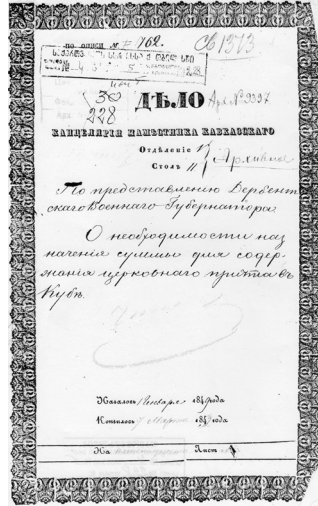 по описи № 762. Св 1373
30
228
ДѢЛО Арх. № 9337
КАНЦЕЛЯРІИ НАМѢСТНИКА КАВКАЗСКАГО
Отдѣленіе
Столъ II
По представленію Дербент
скаго Военнаго Губернатора
О необходимости наз
наченія суммы для содер-
жанія церковнаго причта въ
Кубѣ.
Началось Января 1849 года
Кончилось Марта года
На Лист